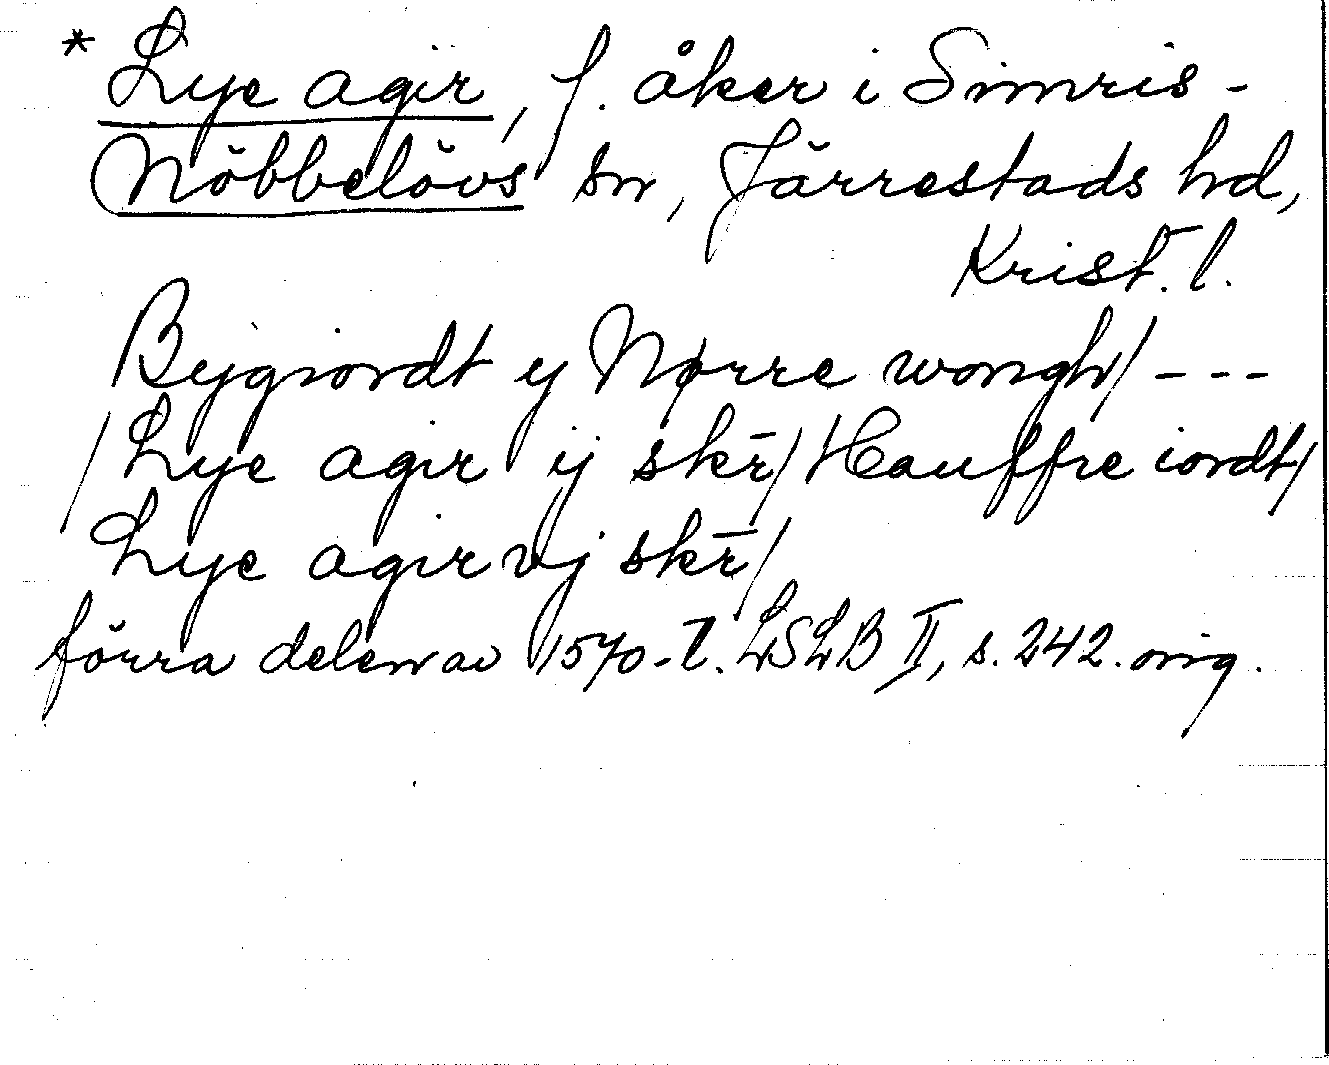 * Lye agir, f. åker i Simris-
Nöbbelövs sn, Järrestads hd,
Krist. l.
Bygiordt y Nørre wongh/ ---
/Lye agir ij skr̄/ Hauffre iordt/
Lye agir vj skr̄/
förra delen av 1570-t. LSLB II, s. 242. orig.